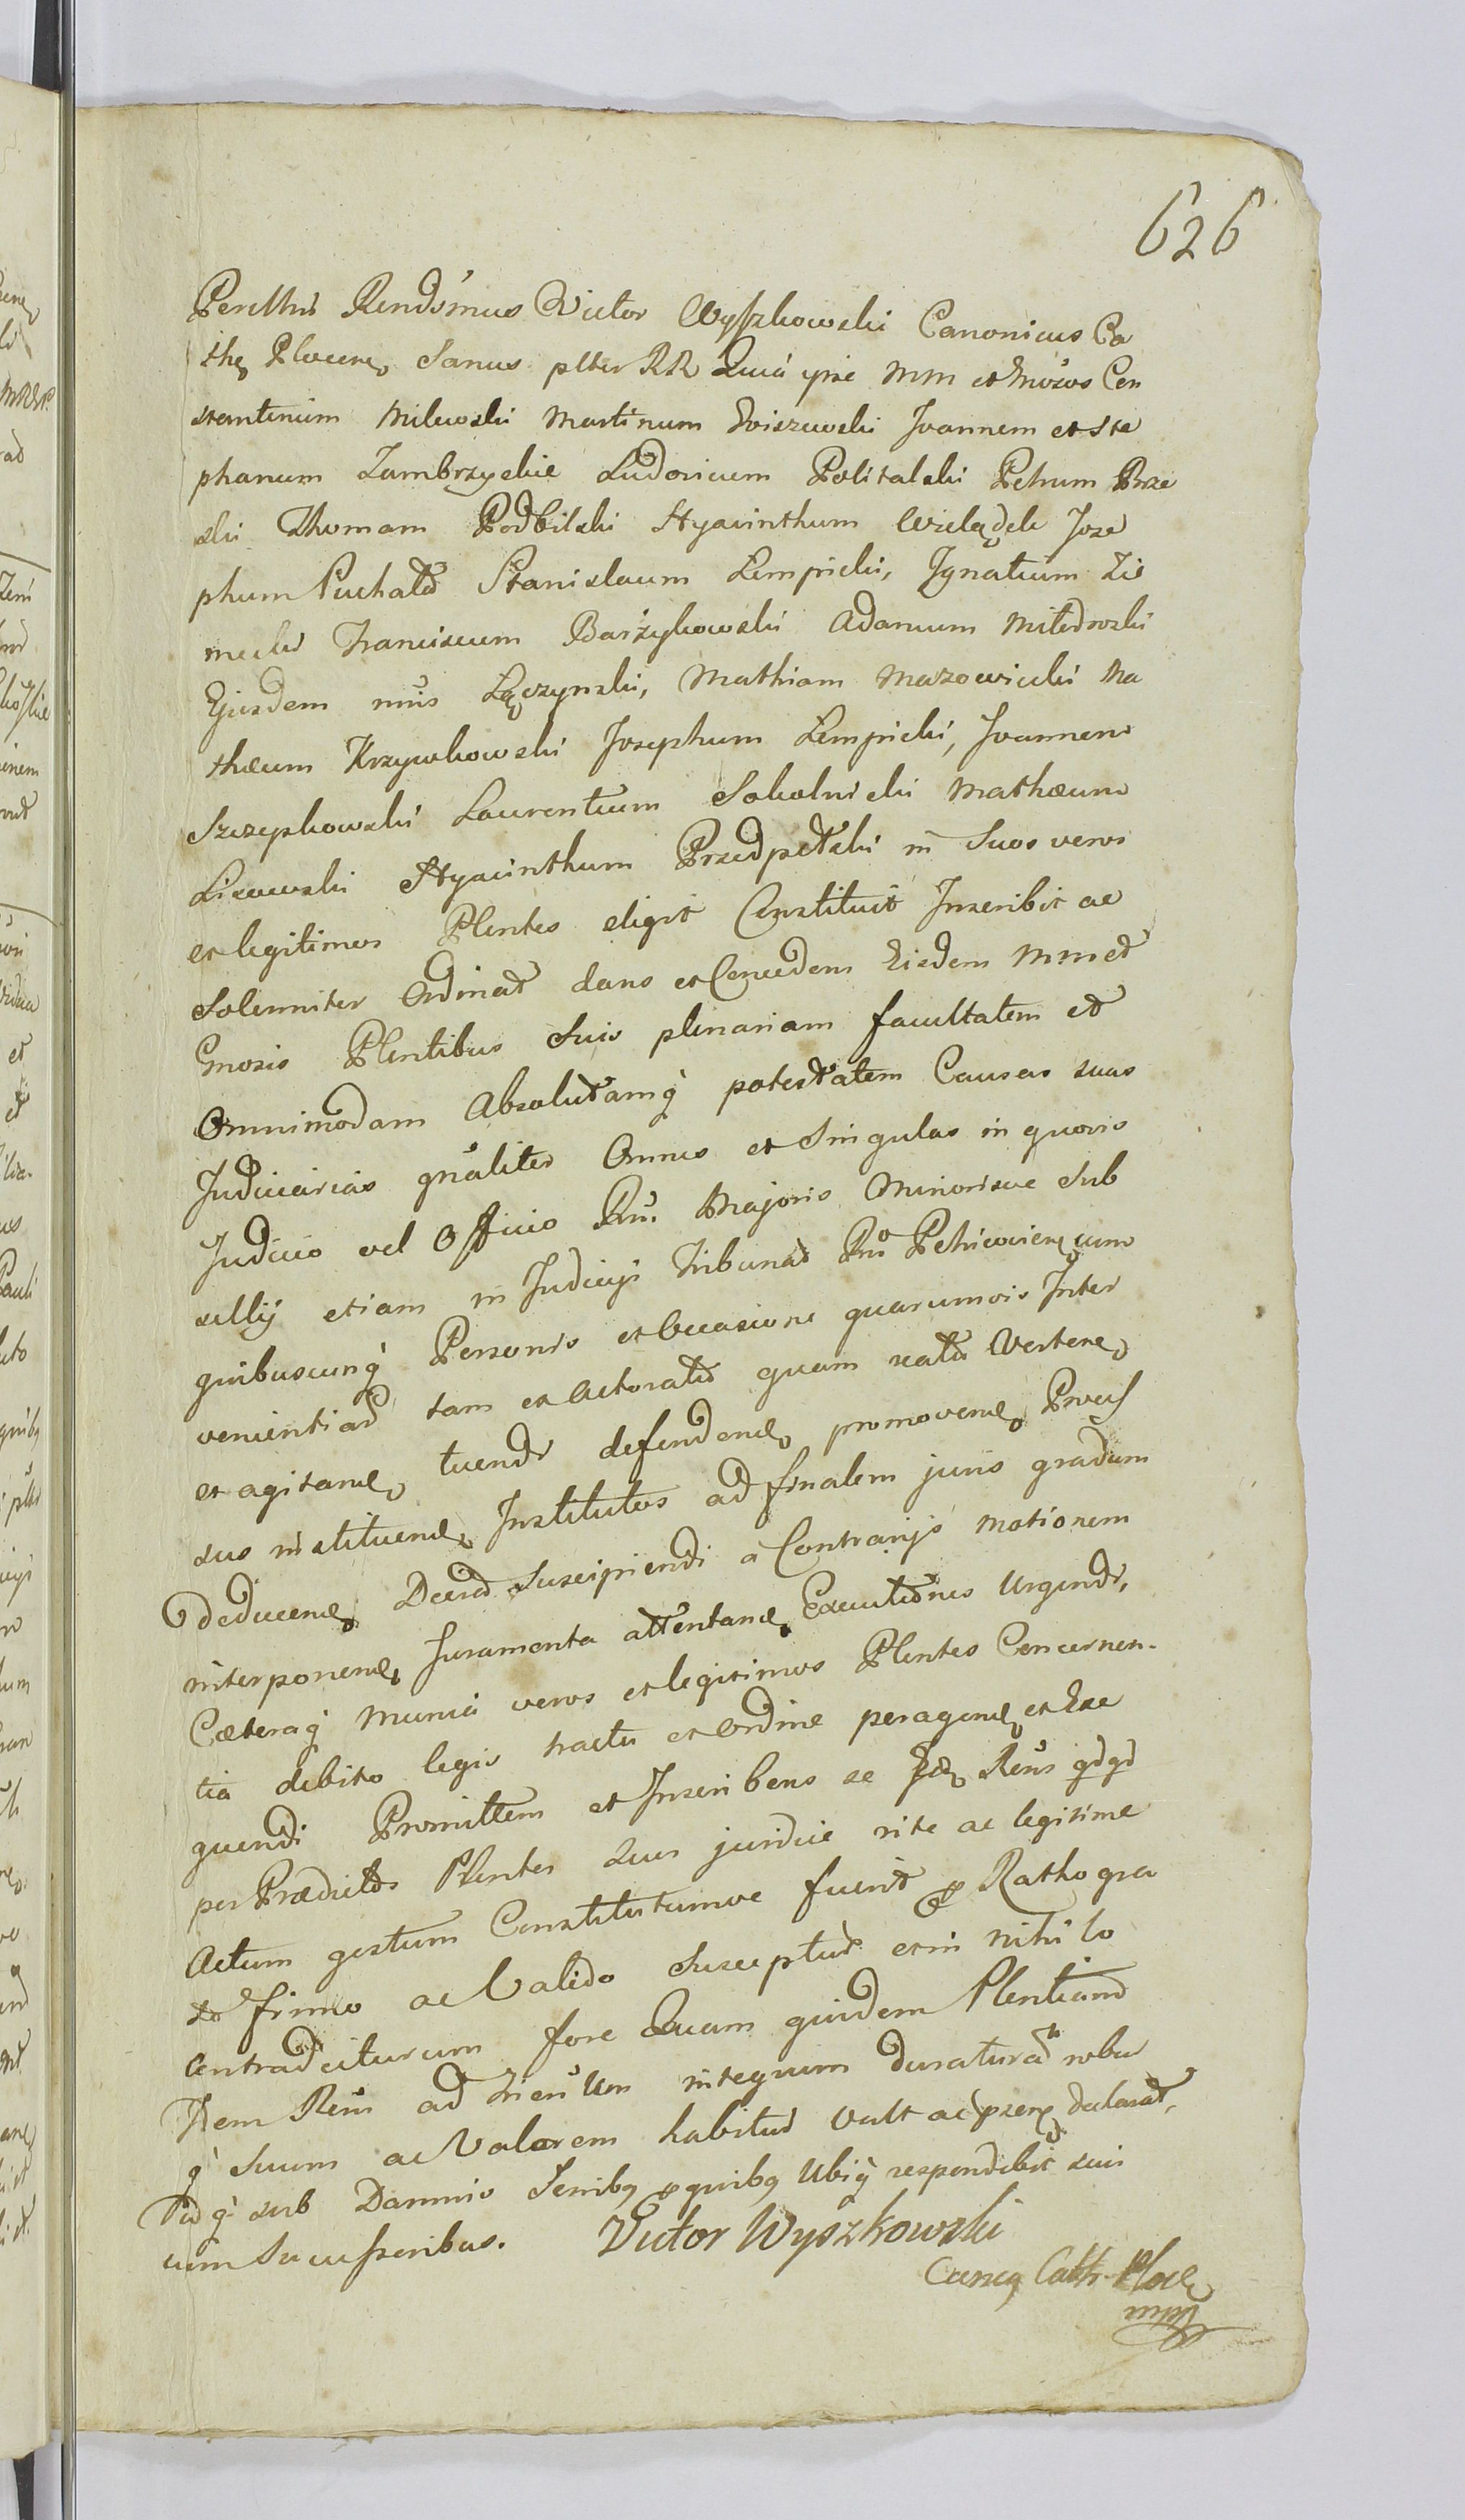 626
Perillris Rendsmus Victor Wyszkowski Canonicus Ca
the Plocens Sanus pltter RR Quia ipse MM et Gnosos Con
stantinum Milewski Martinum Zwiszewski Joannem et Ste
phanum Zambrzyckie Ludovicum Politalski Petrum Brze
ski Thomam Podbilski Hyacinthum Wzelądek Jose
phum Puchała Stanislaum Łempicki, Ignatium Zie
mecki Franciscum Barzykowski Adamum Milodrowski
Ejusdem nnis Łączynski, Mathiam Mazowiecki Ma
thæum Krzywkowski Josephum Łempicki, Joannem
Szczypkowski Laurentium Sokolnicki Mathæum
Lisowski Hyacinthum Przedpełski in Suos veros
et legitimos Plentes eligit Constituit Inscribit ac
Solemniter Ordinat dans et Concedens Eisdem MM et
Gnosis Plentibus Suis plenariam facultatem et
Omnimodam Absolutamq potestatem Causas suas
Judiciarias gnaliter Omnes et Singulas in quovis
Judicio vel Officio Rni Majoris Minorisve Sub
sellij etiam in Judicijs Tribunal Rni Petricovien cum
quibuscunq Personis et Occasione quarumvis Inter
venientiar tam ex Actoratu quam reatu Vertere
et agitand tuendi defendend promovend Proces
sus instituend Institutos ad finalem juris gradum
deducend Decret Suscipiendi a Contrarijs motionem
interponend Juramenta attentand Executiones Urgendi,
Cæteraq Munia veros et legitimos Plentes Concernen-
tia debito legis tractu et Ordine peragend et Exe
quendi Promittens et Inscribens se Id Rens qdqd
per Prædictos Plentes Suos juridice rite ac legitime
Actum gestum Constitutumve fuerit pro Ratho gra
to firmo ac Valido Suscepturus et in nihilo
Contradicturum fore Quam quidem Plentiam
Idem Rens ad Trien Un integrum duraturam robur
q Suum ac Valorem habitur Vult ac psens declarat,
Idq sub Damnis Terribq pro quibq Ubiq respondebit suis
cum Successoribus. Victor Wyszkowski
Canonq Cath. Ploce
mpp